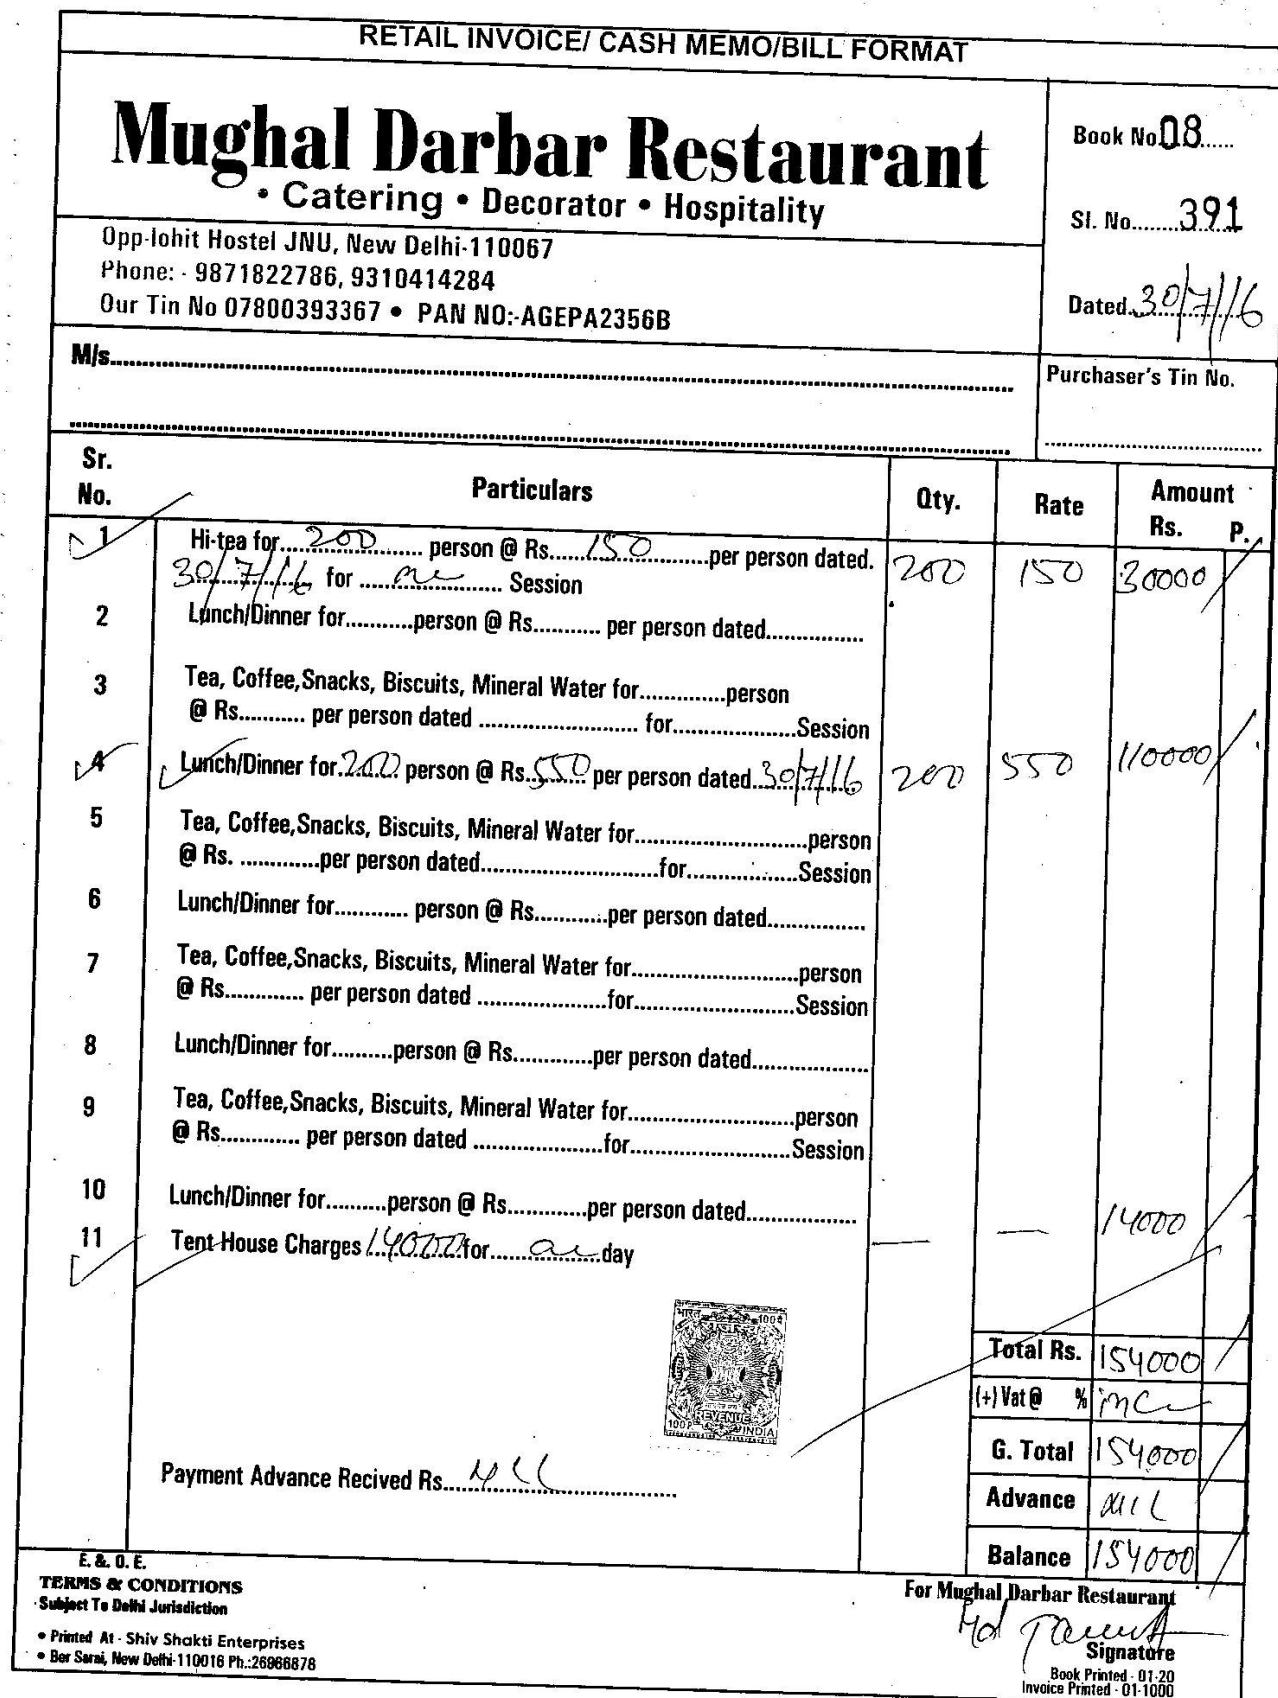 RETAIL INVOICE/ CASH MEMO/BILL FORMAT
Mughal Darbar Restaurant
• Catering • Decorator • Hospitality
Book No.08......
Sl. No........391
Dated..30/7/16
Opp-lohit Hostel JNU, New Delhi-110067
Phone: - 9871822786, 9310414284
Our Tin No 07800393367 • PAN NO:-AGEPA2356B
M/s
Purchaser's Tin No.
Sr. No. Particulars Qty. Rate Amount Rs. P.
1 Hi-tea for....200....... person @ Rs......150.......per person dated. 200 150 30000
30/7/16 for ............ Session
2 Lunch/Dinner for...........person @ Rs........... per person dated................
3 Tea, Coffee,Snacks, Biscuits, Mineral Water for..............person
@ Rs........... per person dated ......................... for....................Session
4 Lunch/Dinner for.200. person @ Rs..550.. per person dated..30/7/16 200 550 110000
5 Tea, Coffee,Snacks, Biscuits, Mineral Water for...........................person
@ Rs. .............per person dated............................for..................Session
6 Lunch/Dinner for............ person @ Rs...........per person dated................
7 Tea, Coffee,Snacks, Biscuits, Mineral Water for..........................person
@ Rs............. per person dated .....................for..........................Session
8 Lunch/Dinner for..........person @ Rs.............per person dated...................
9 Tea, Coffee,Snacks, Biscuits, Mineral Water for..........................person
@ Rs............. per person dated .....................for..........................Session
10 Lunch/Dinner for..........person @ Rs.............per person dated..................
11 Tent House Charges 14000 for.................day — — 14000
भारत 100
REVENUE
100 P INDIA
Total Rs. 154000
(+) Vat @ %
G. Total 154000
Payment Advance Recived Rs....Nil
Advance Nil
Balance 154000
E. & O. E.
TERMS & CONDITIONS
Subject To Delhi Jurisdiction
• Printed At - Shiv Shakti Enterprises
• Ber Sarai, New Delhi-110016 Ph.:26966878
For Mughal Darbar Restaurant
Signature
Book Printed - 01-20
Invoice Printed - 01-1000